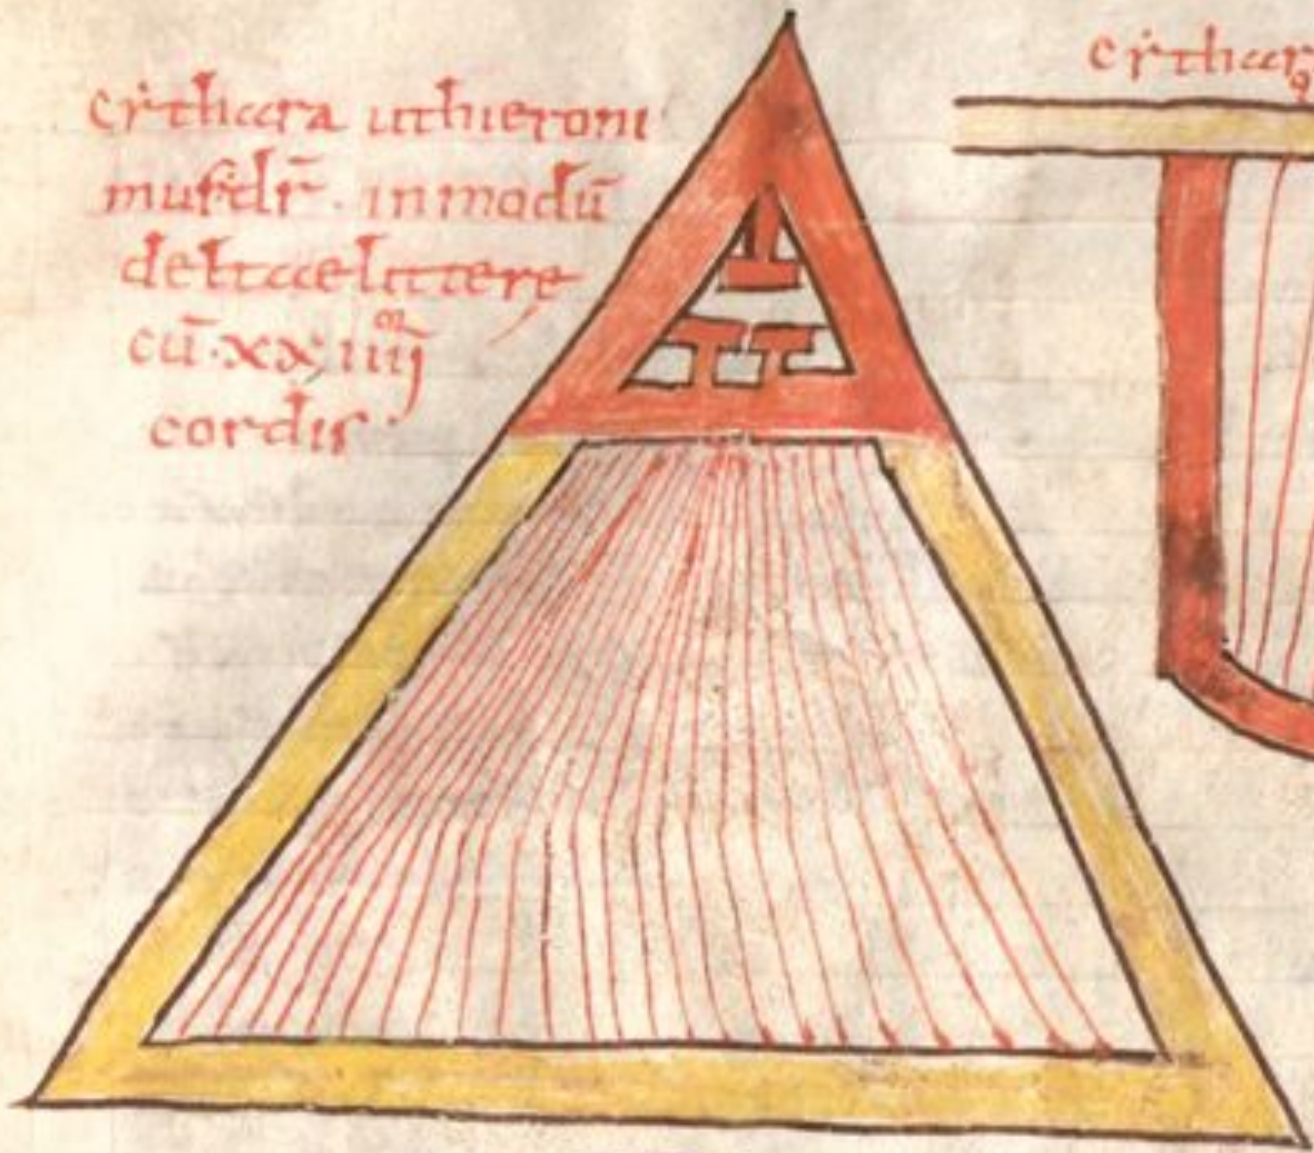 cythara ut hieroni
mus dr̄ · in modū
deltae litterę
cū · xx iiii^or
cordis ·
cythar